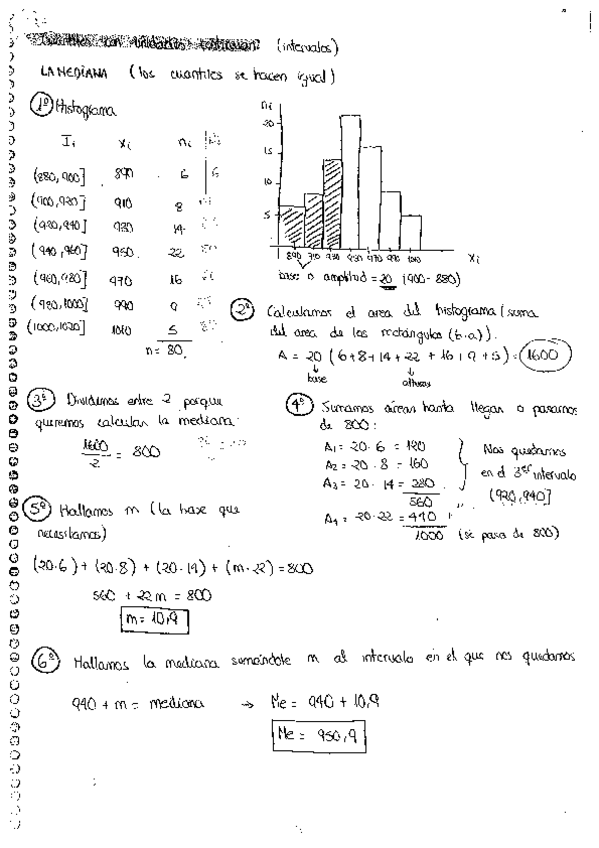 (intervalos)
LA MEDIANA (los cuantiles se hacen igual)
1º Histograma
Ii xi ni
(880,900] 890 6 6
(900,920] 910 8
(920,940] 930 14
(940,960] 950 22
(960,980] 970 16
(980,1000] 990 9
(1000,1020] 1010 5
n = 80
ni
20
15
10
5
890 910 930 950 970 990 1010 xi
base o amplitud = 20 (900-880)
2º Calculamos el area del histograma (suma
del area de los rectángulos (b·a)).
A = 20 (6+8+14+22+16+9+5) = 1600
base alturas
3º Dividimos entre 2 porque
queremos calcular la mediana:
1600/2 = 800
4º Sumamos áreas hasta llegar o pasarnos
de 800:
A1 = 20·6 = 120
A2 = 20·8 = 160
A3 = 20·14 = 280
560
A4 = 20·22 = 440
1000 (se pasa de 800)
Nos quedamos
en el 3er intervalo
(920,940]
5º Hallamos m (la base que
necesitamos)
(20·6) + (20·8) + (20·14) + (m·22) = 800
560 + 22m = 800
m = 10,9
6º Hallamos la mediana sumándole m al intervalo en el que nos quedamos
940 + m = mediana → Me = 940 + 10,9
Me = 950,9